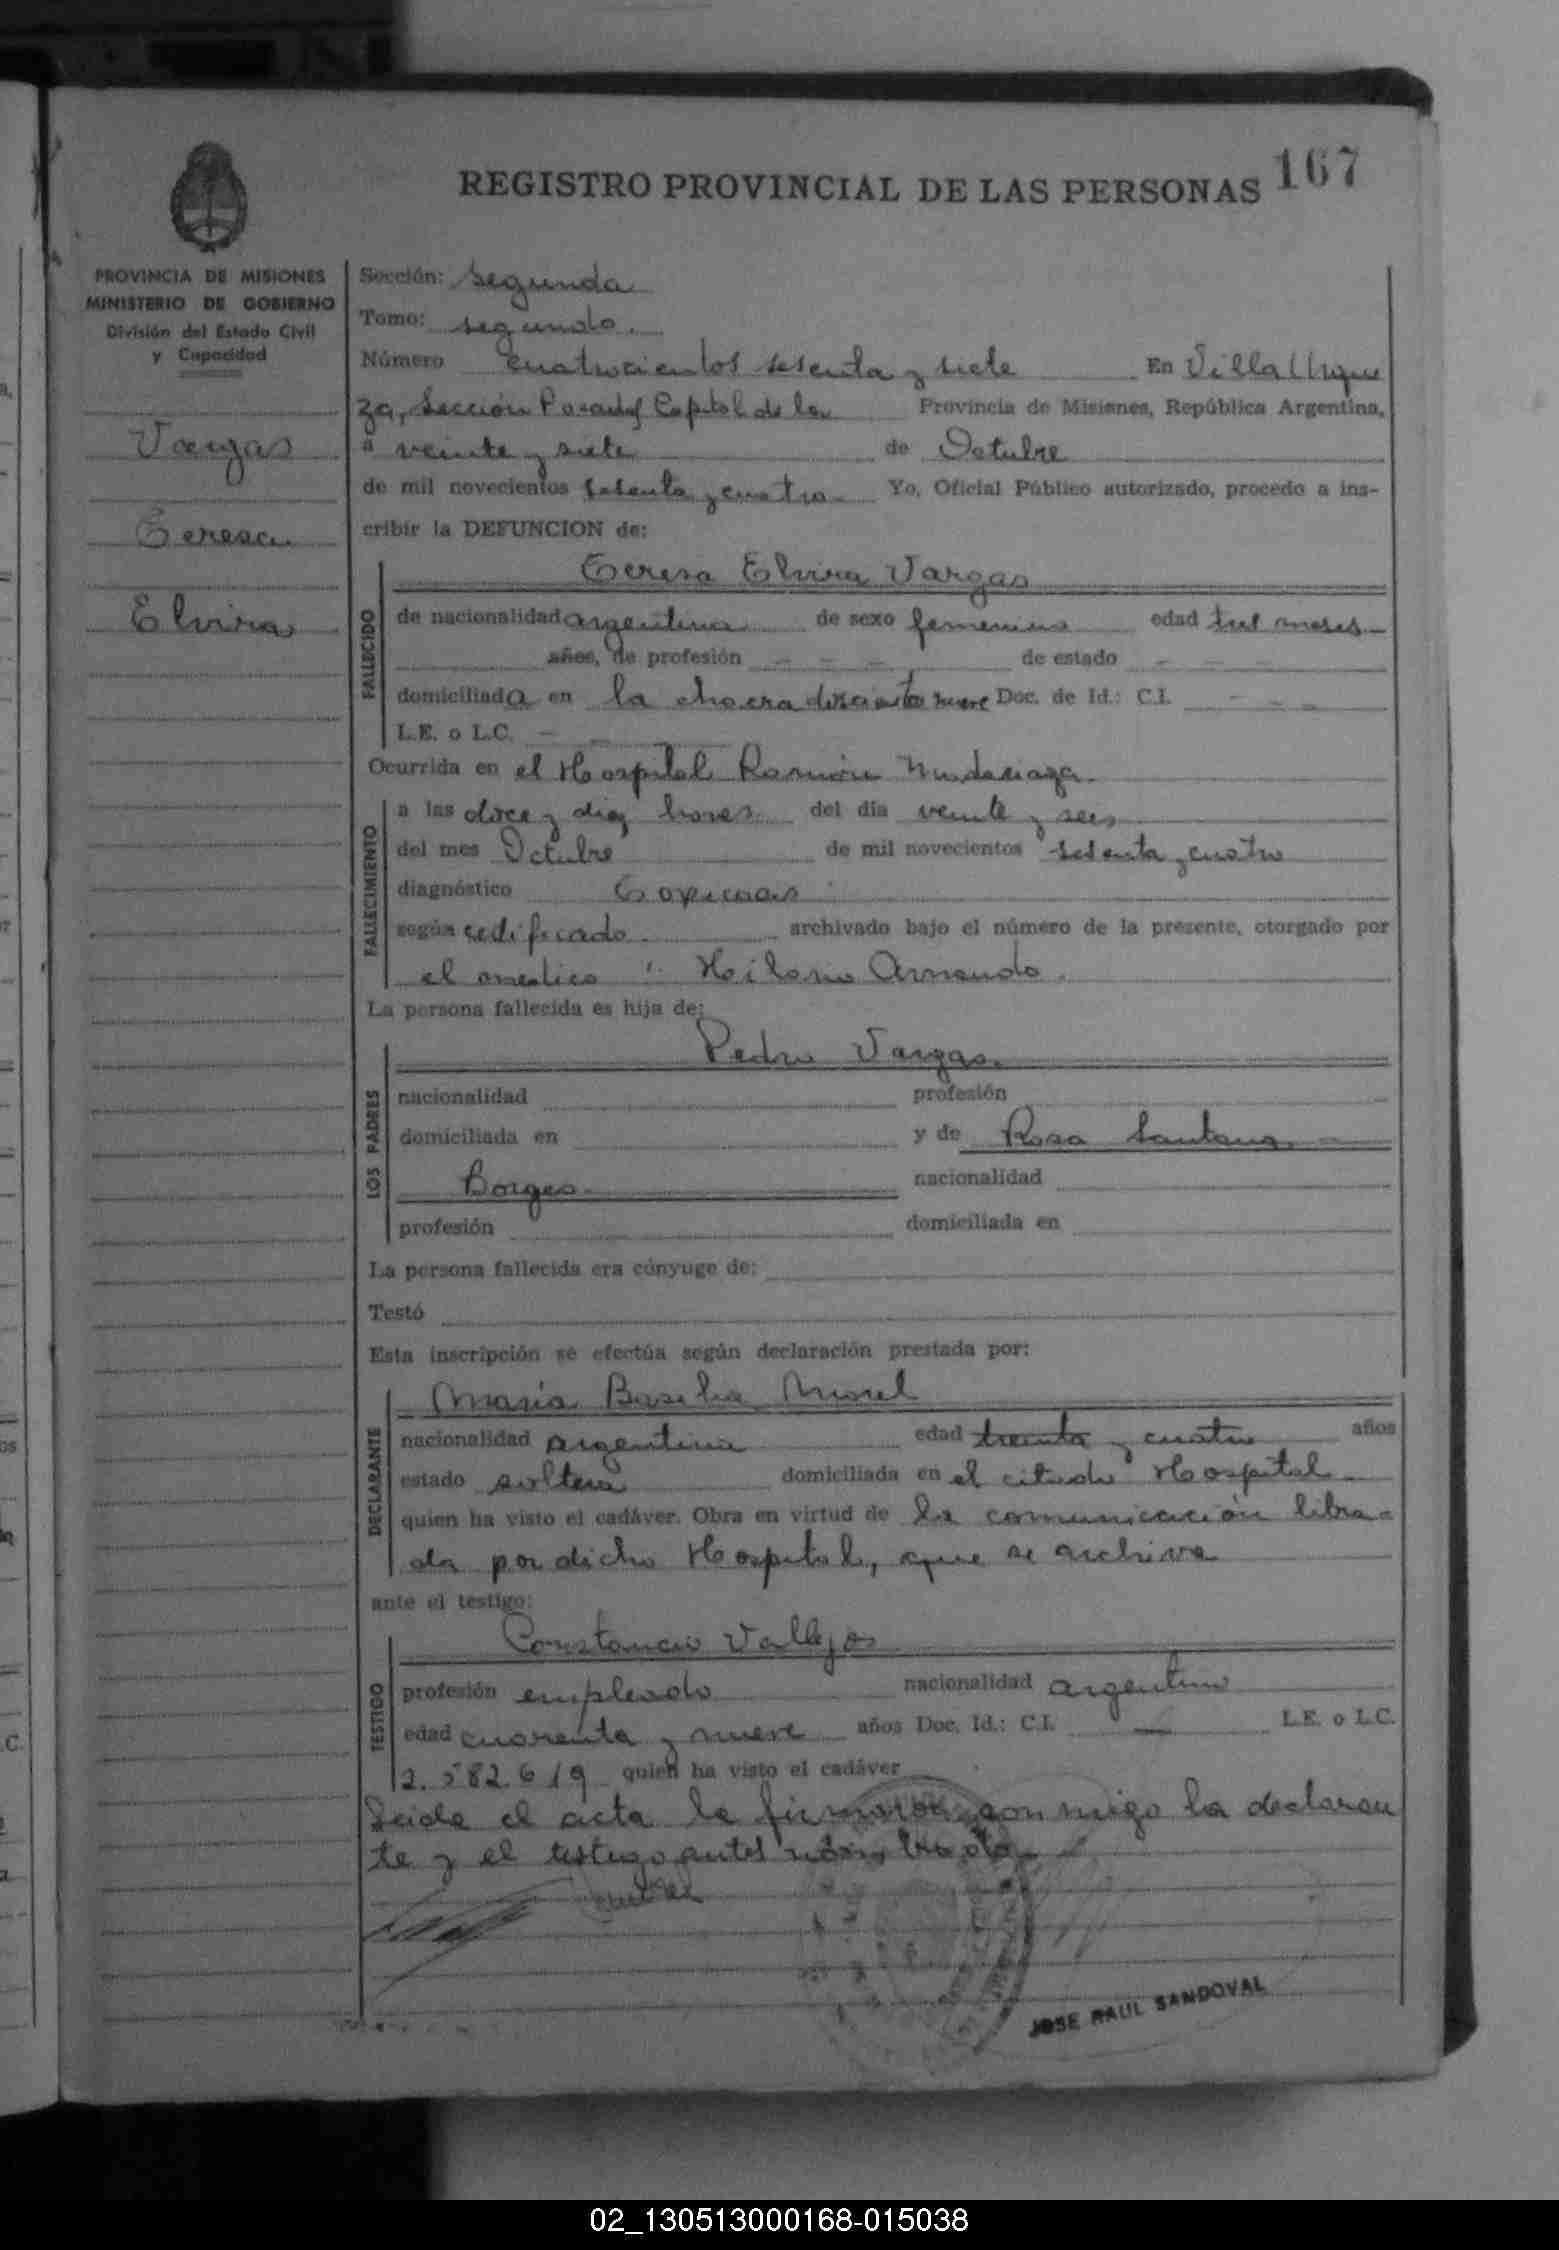 167
REGISTRO PROVINCIAL DE LAS PERSONAS
PROVINCIA DE MISIONES
MINISTERIO DE GOBIERNO
División del Estado Civil
y Capacidad
Vargas
Teresa
Elvira
Sección: segunda
Tomo: segundo.
Número cuatrocientos sesenta y siete En Villa Urqui
za, Sección Posadas Capital de la Provincia de Misiones, República Argentina,
a veinte y siete de Octubre
de mil novecientos sesenta y cuatro Yo, Oficial Público autorizado, procedo a ins-
cribir la DEFUNCION de:
Teresa Elvira Vargas
FALLECIDO
de nacionalidad argentina de sexo femenino edad tres meses
años, de profesión - - - de estado - - -
domiciliada en la chacra Doc. de Id.: C.I. - - -
L.E. o L.C. - -
Ocurrida en el Hospital Ramón Madariaga.
FALLECIMIENTO
a las doce y diez horas del día veinte y seis
del mes Octubre de mil novecientos sesenta y cuatro
diagnóstico Toxicosis
según certificado archivado bajo el número de la presente, otorgado por
el médico Hilario Armando.
La persona fallecida es hija de:
Pedro Vargas.
LOS PADRES
nacionalidad profesión
domiciliada en y de Rosa Santana
Borges nacionalidad
profesión domiciliada en
La persona fallecida era cónyuge de:
Testó
Esta inscripción se efectúa según declaración prestada por:
María Basilia Morel
DECLARANTE
nacionalidad argentina edad treinta y cuatro años
estado soltera domiciliada en el citado Hospital
quien ha visto el cadáver. Obra en virtud de la comunicación libra-
da por dicho Hospital, que se archiva
ante el testigo:
Constancio Vallejos
TESTIGO
profesión empleado nacionalidad argentino
edad cuarenta y nueve años Doc. Id.: C.I. — L.E. o L.C.
2.582.619 quien ha visto el cadáver
Leida el acta la firmaron conmigo la declaran
te y el testigo antes nombrado
JOSE RAUL SANDOVAL
02_130513000168-015038